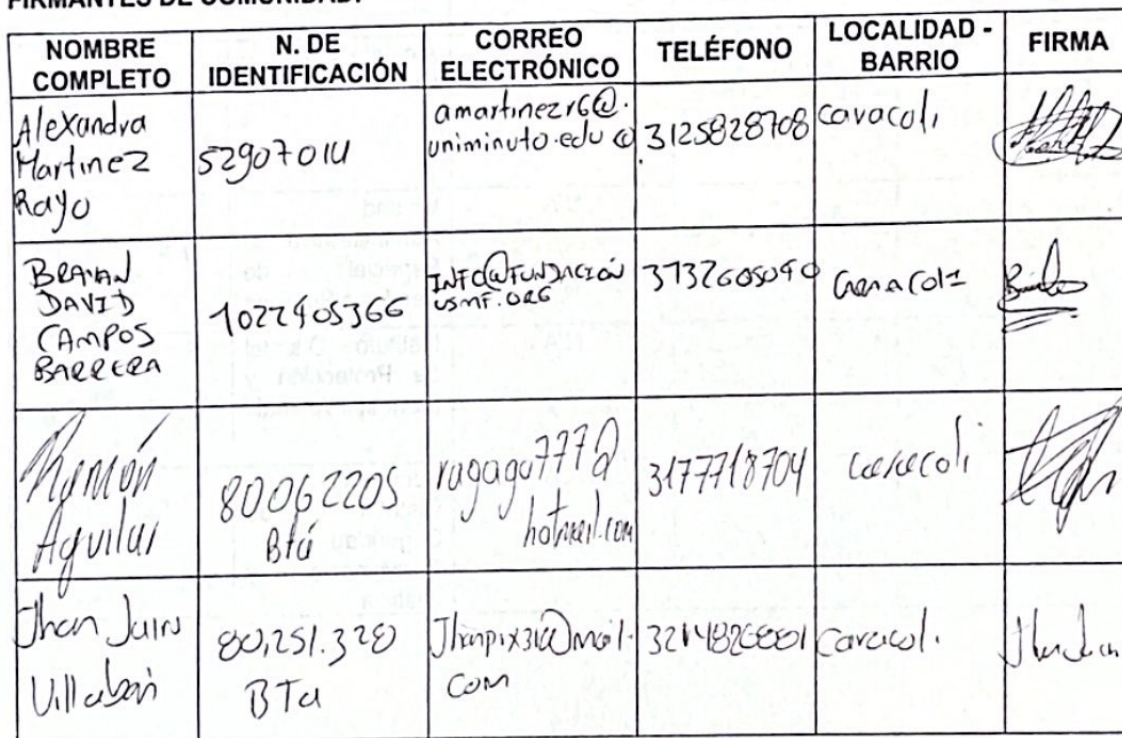 FIRMANTES DE COMUNIDAD:
NOMBRE COMPLETO | N. DE IDENTIFICACIÓN | CORREO ELECTRÓNICO | TELÉFONO | LOCALIDAD - BARRIO | FIRMA
Alexandra
Martinez
Rayo
amartinezr6@.
uniminuto.edu.@
3125828708
caracoli
DAVID
CAMPOS
BARRERA
1022405366
INFO@FUNDACIÓN
USMF.ORG
Caracoli
Ramón
Aguilar
80062205
Bta
hotmail.com
3177718704
caracoli
Jhon Jairo
80,251.328
BTa
com
Caracoli